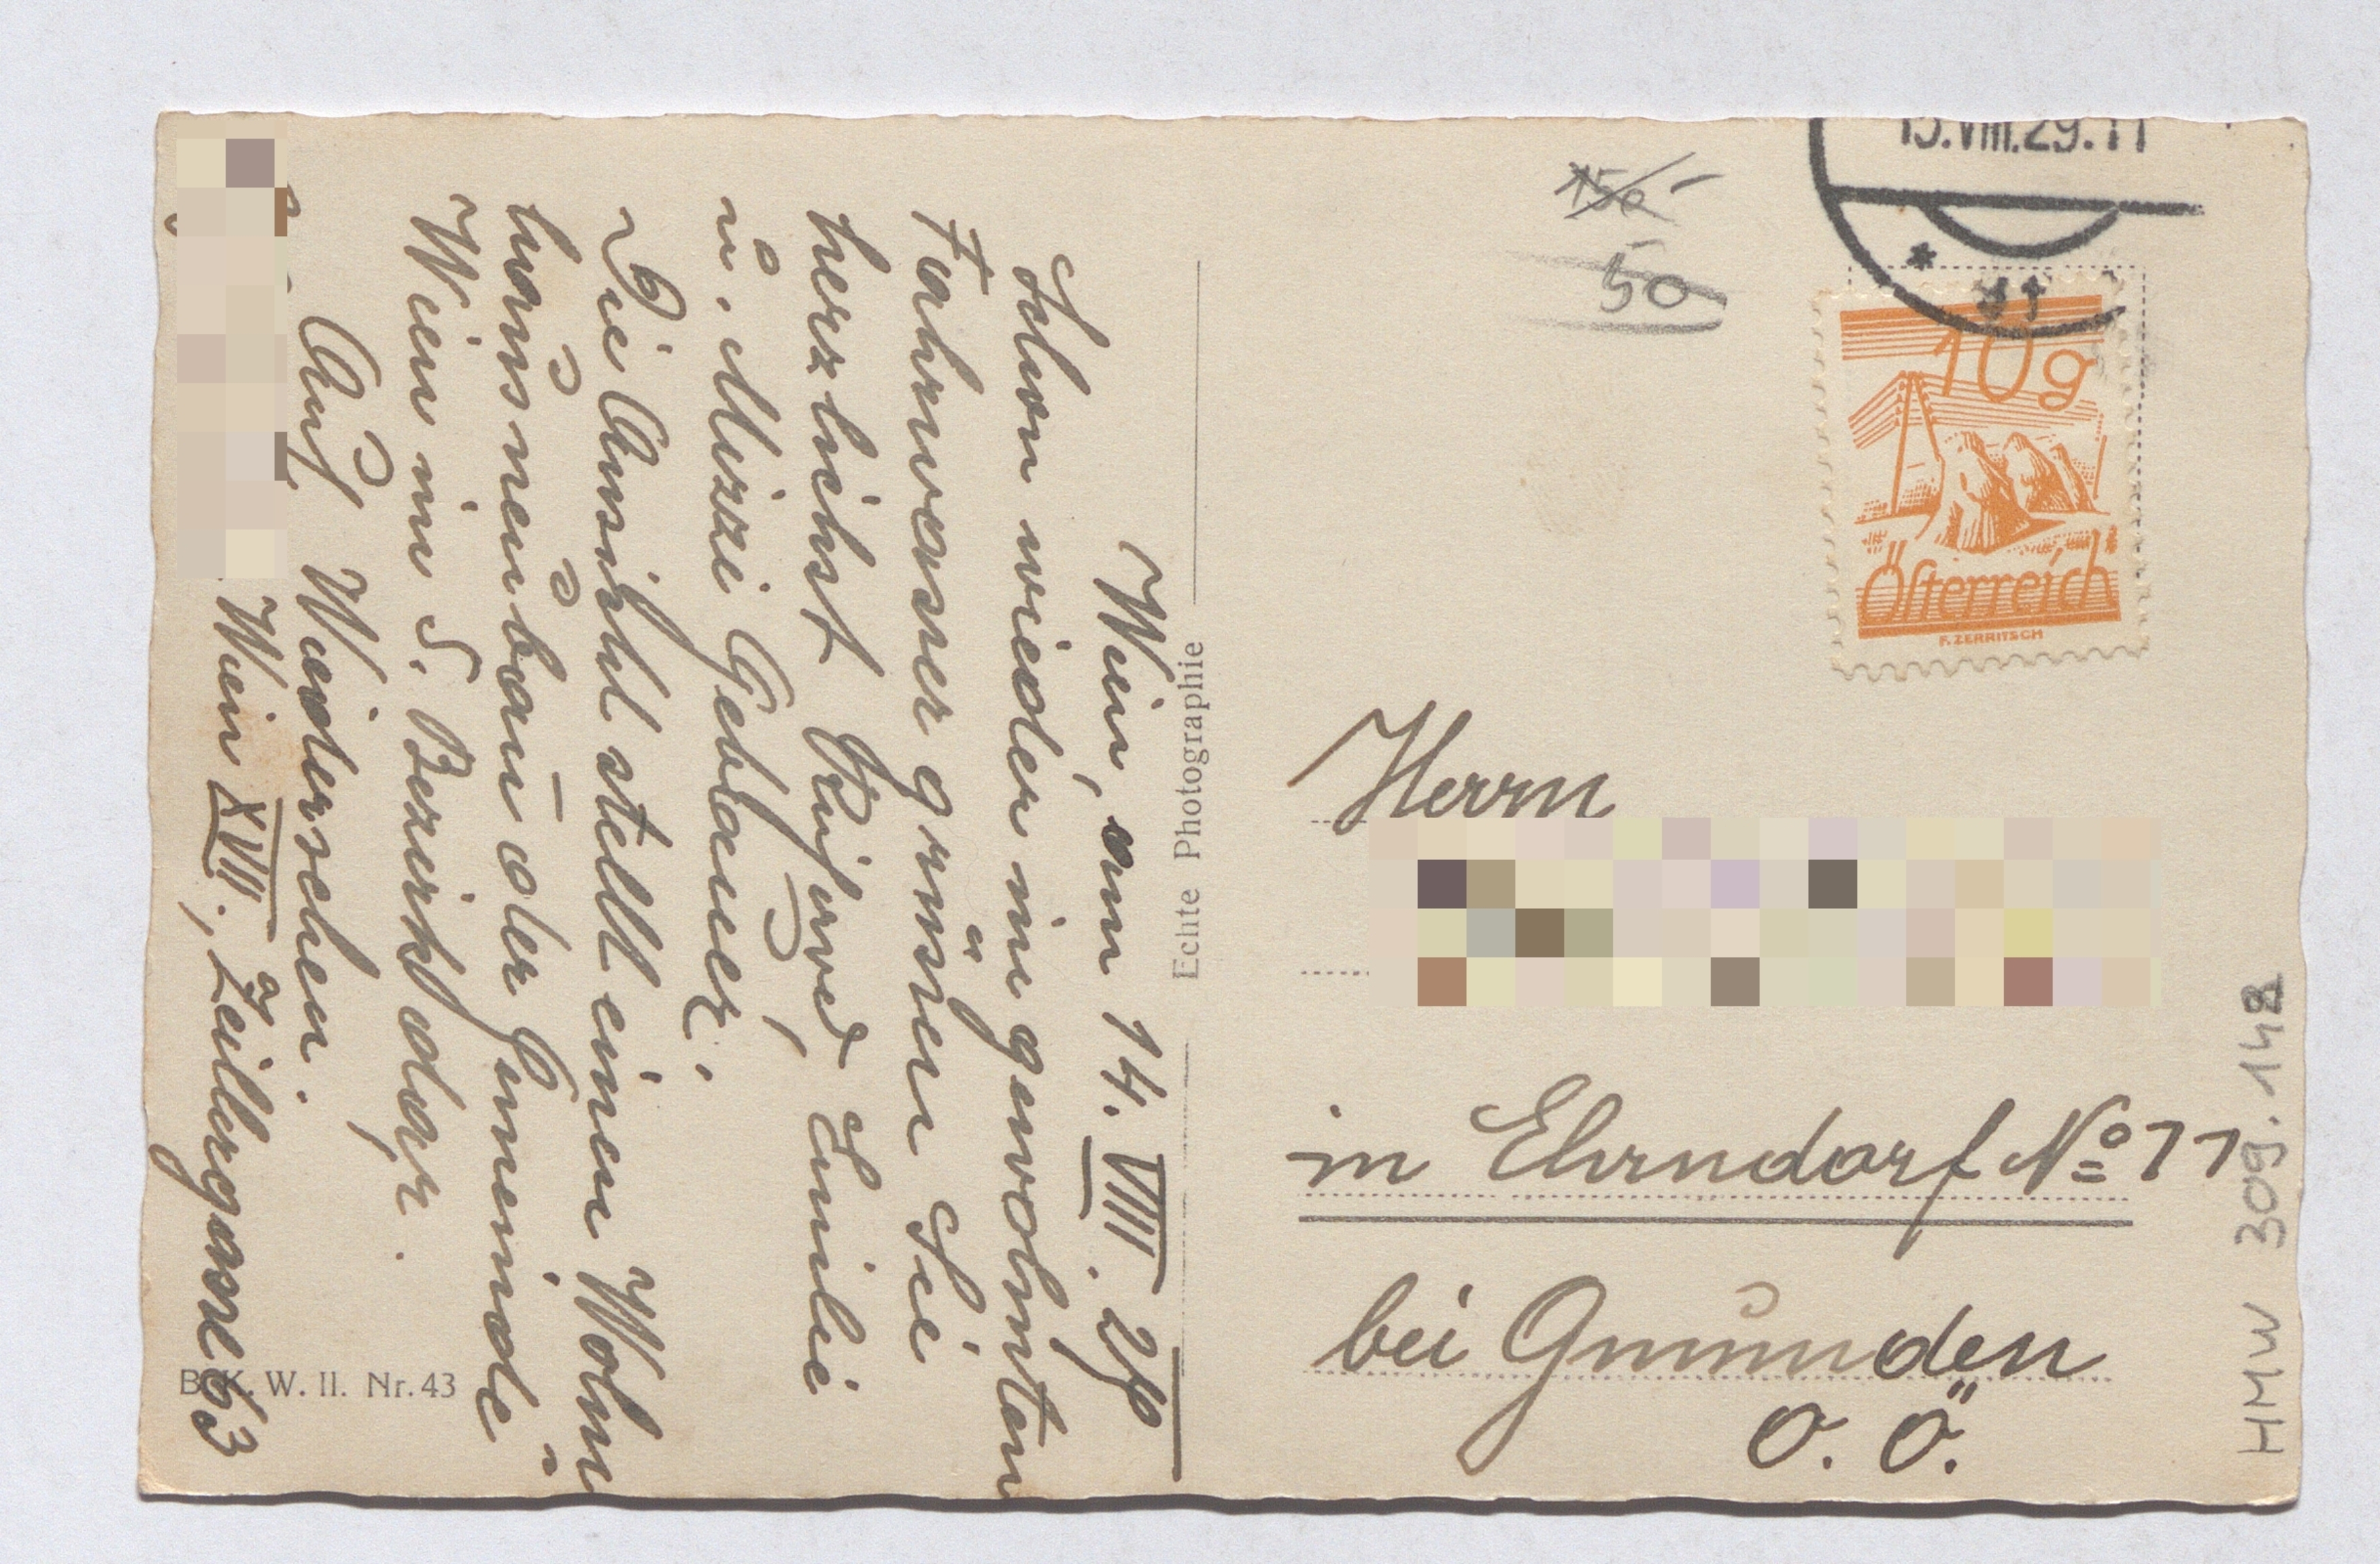 Wien, am 14. VIII. 29
Schon wieder im gewohnten
Fahrwasser grüßen Sie
herzlichst Emilie
u. Mizzi Gebauer.
Die Ansicht stellt einen Wohn
hausneubau der Gemeinde
Wien im 5. Bezirk dar.
Auf Wiedersehen.
Wien XVII., Zeillergasse 63
B. K. W. II. Nr. 43
Echte Photographie
150
50
15.VIII.29.11
10g
Österreich
F. ZERRITSCH
Herrn
in Ehrndorf No 11
bei Gmunden
O. Ö.
HMW 309.142